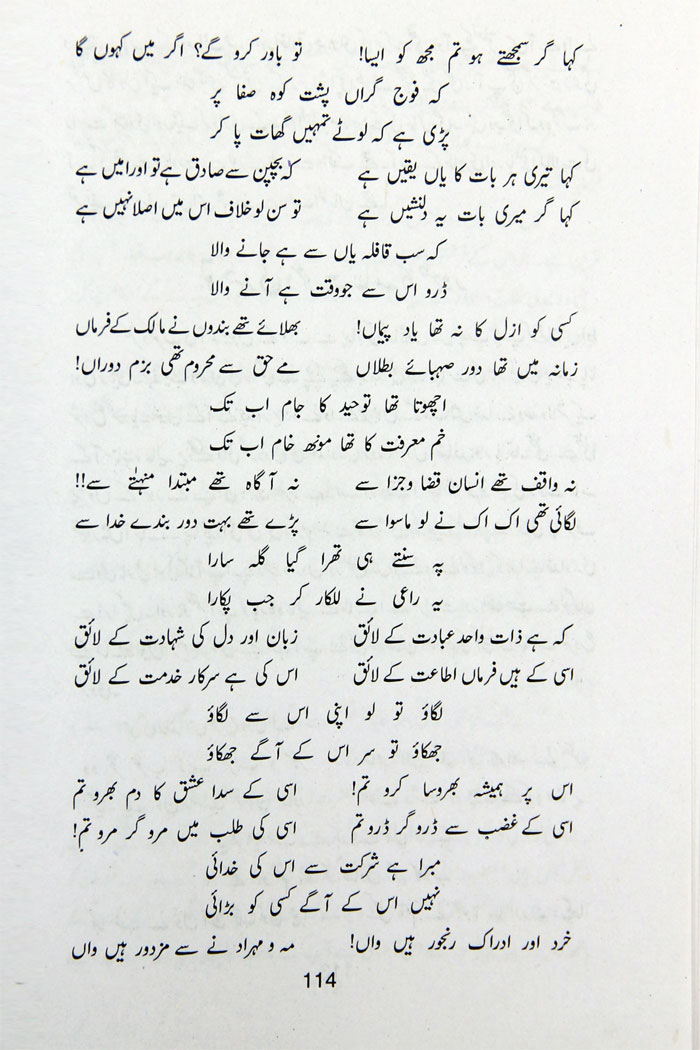 کہا گر سمجھتے ہو تم مجھ کو ایسا! تو باور کرو گے؟ اگر میں کہوں گا
کہ فوج گراں پشت کوہ صفا پر
پڑی ہے کہ لوٹے تمہیں گھات پا کر
کہا تیری ہر بات کا یاں یقیں ہے کہ بچپن سے صادق ہے تو اور امیں ہے
کہا گر میری بات یہ دلنشیں ہے تو سن لو خلاف اس میں اصلا نہیں ہے
کہ سب قافلہ یاں سے ہے جانے والا
ڈرو اس سے جو وقت ہے آنے والا
کسی کو ازل کا نہ تھا یاد پیماں! بھلائے تھے بندوں نے مالک کے فرماں
زمانہ میں تھا دور صہبائے بطلاں مے حق سے محروم تھی بزم دوراں!
اچھوتا تھا توحید کا جام اب تک
خم معرفت کا تھا مونھ خام اب تک
نہ واقف تھے انسان قضا و جزا سے نہ آگاہ تھے مبتدا منہتےٰ سے!!
لگائی تھی اک اک نے لو ماسوا سے پڑے تھے بہت دور بندے خدا سے
یہ سنتے ہی تھرا گیا گلہ سارا
یہ راعی نے للکار کر جب پکارا
کہ ہے ذات واحد عبادت کے لائق زبان اور دل کی شہادت کے لائق
اسی کے ہیں فرماں اطاعت کے لائق اس کی ہے سرکار خدمت کے لائق
لگاؤ تو لو اپنی اس سے لگاؤ
جھکاؤ تو سر اس کے آگے جھکاؤ
اس پر ہمیشہ بھروسا کرو تم! اسی کے سدا عشق کا دم بھرو تم
اسی کے غضب سے ڈرو گر ڈرو تم اسی کی طلب میں مرو گر مرو تم!
مبرا ہے شرکت سے اس کی خدائی
نہیں اس کے آگے کسی کو بڑائی
خرد اور ادراک رنجور ہیں واں! مہ و مہراد نے سے مزدور ہیں واں
114